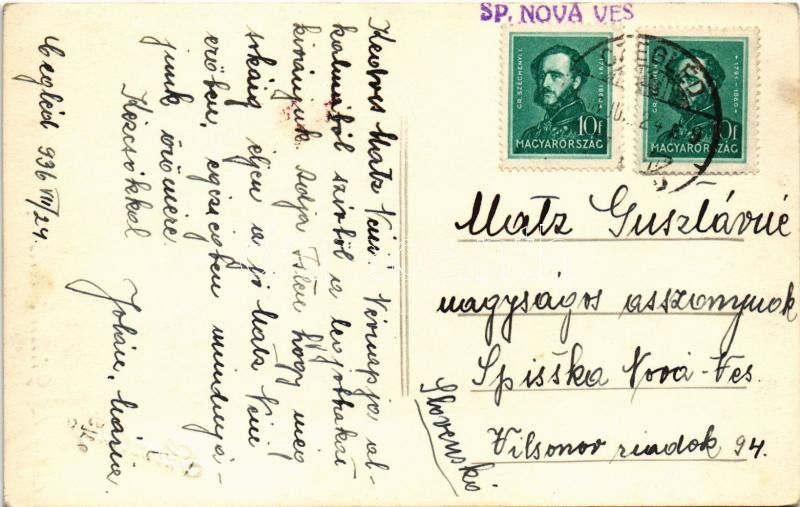 SP. NOVÁ VES
GR. SZÉCHENYI I.
1791-1860
10f
MAGYARORSZÁG
GR. SZÉCHENYI I.
1791-1860
10f
MAGYARORSZÁG
CZEGLÉD
Cegléd 936 VII/24.
Kedves Matz Néni! Névnapja al-
kalmából szívből a legjobbakat
kivánjuk. Adja Isten hogy még
sokáig éljen a jó Matz Néni
erőben, egészségben mindnyá-
junk örömére.
Kézcsókkal
Mária.
Matz Gusztávné
nagyságos asszonynak
Spišska Nová-Ves.
Vilsonov riadok 94.
Slovensko